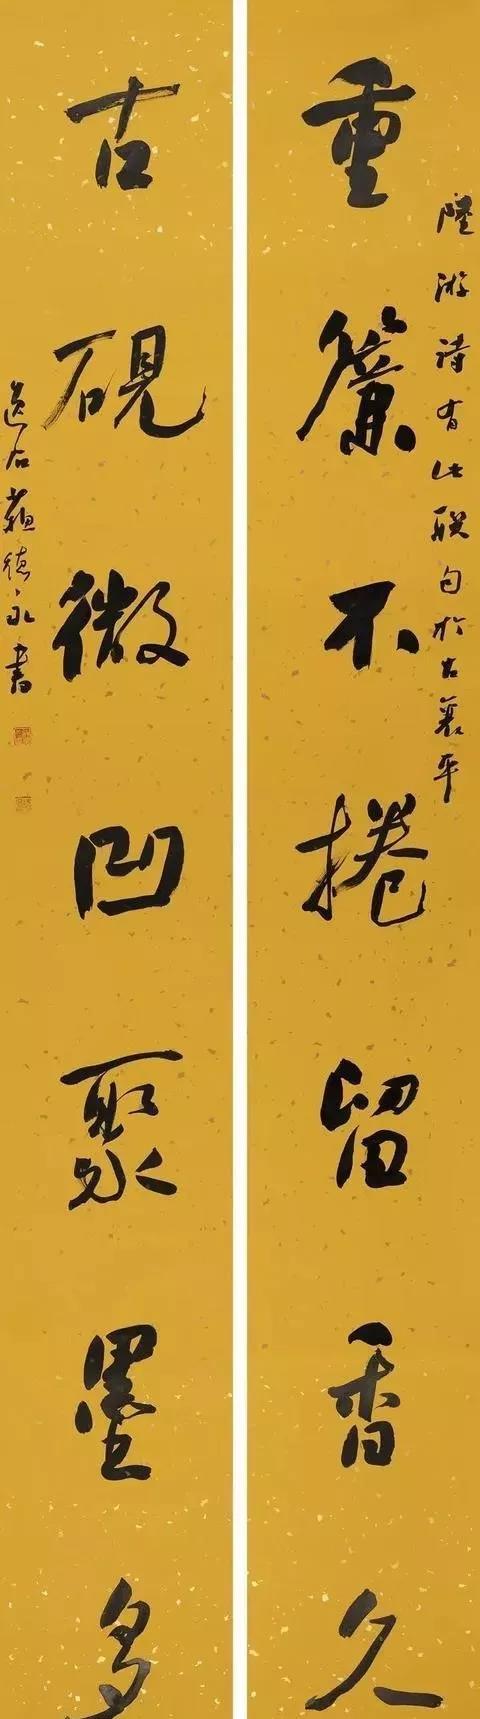 陸游詩有此聯句於古襄平
重簾不捲留香久
古硯微凹聚墨多
石蘇德永書